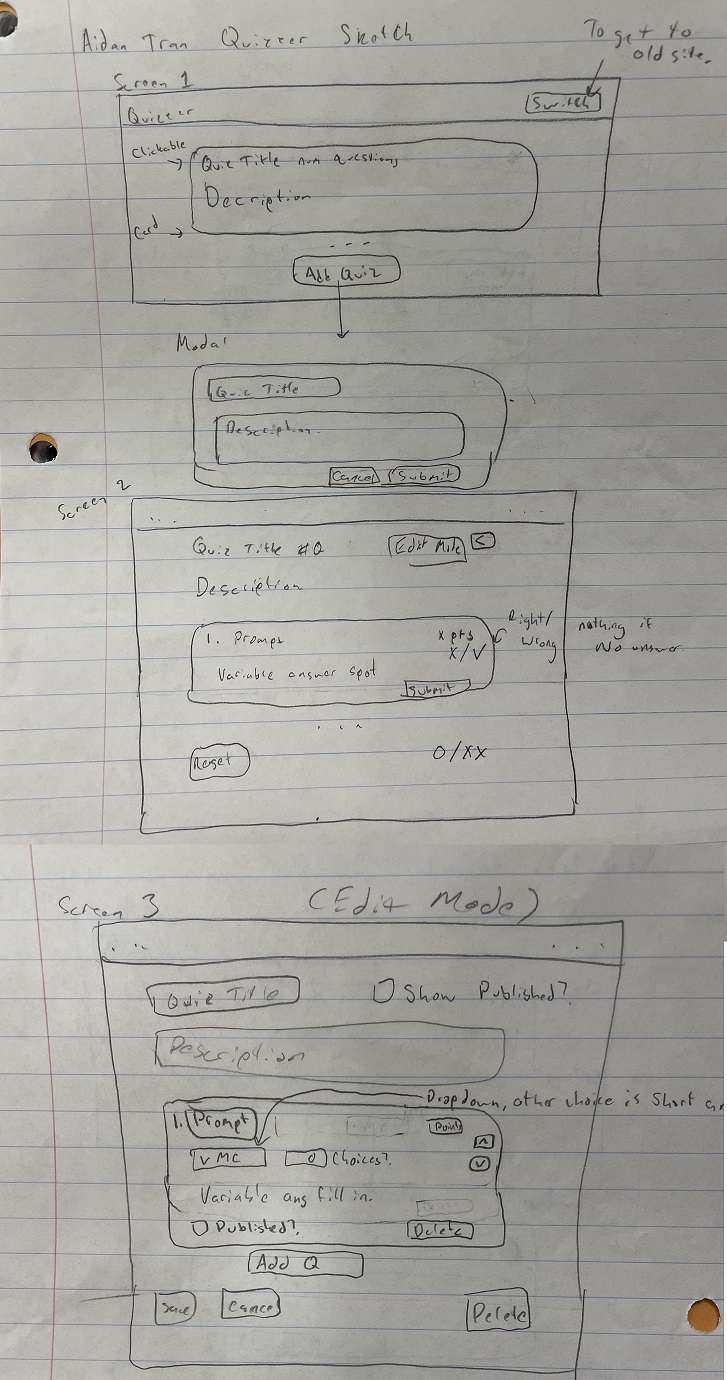 Aidan Tran Quizzer Sketch
To get to
old site.
Screen 1
Quizzer
Switch
Clickable
Quiz Title num questions
Decription
Card
...
Add Quiz
Modal
Quiz Title
Description
Cancel Submit
Screen 2
... ...
Quiz Title #Q Edit Mode <
Description
1. Prompt x pts
X/√
Right/
Wrong
nothing if
No answer
Variable answer spot
Submit
...
Reset 0/XX
Screen 3 (Edit Mode)
... ...
Quiz Title Show Published?
Description
Dropdown, other choice is Short
1. Prompt Points
^
v MC 0 Choices?
v
Variable ans fill in.
Published? Delete
Add Q
Save Cancel Delete